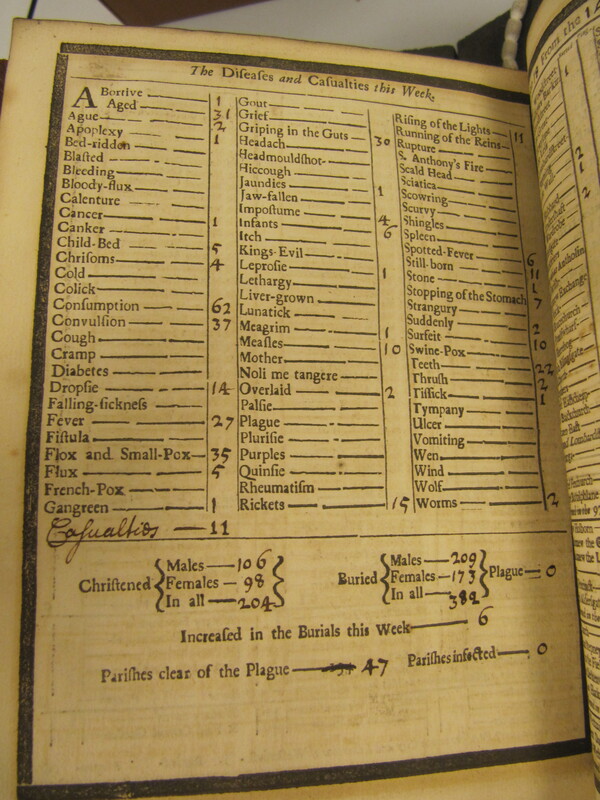 The Diſeaſes and Caſualties this Week.
ABortive 1
Aged 31
Ague 2
Apoplexy 1
Bed-ridden
Blaſted
Bleeding
Bloody-flux
Calenture
Cancer 1
Canker
Child-Bed 5
Chriſoms 4
Cold
Colick
Conſumption 62
Convulſion 37
Cough
Cramp
Diabetes
Dropſie 14
Falling-ſickneſs
Fever 27
Fiſtula
Flox and Small-Pox 35
Flux 5
French-Pox
Gangreen 1
Caſualties — 11
Gout
Grief
Griping in the Guts 30
Headach
Headmouldſhot
Hiccough
Jaundies 1
Jaw-fallen
Impoſtume 4
Infants 6
Itch
Kings-Evil
Leproſie 1
Lethargy
Liver-grown
Lunatick
Meagrim 1
Meaſles 10
Mother
Noli me tangere
Overlaid 2
Palſie
Plague
Pluriſie
Purples
Quinſie
Rheumatiſm
Rickets 15
Riſing of the Lights 11
Running of the Reins
Rupture
S. Anthony's Fire
Scald Head
Sciatica
Scowring
Scurvy
Shingles
Spleen
Spotted-Fever 6
Still-born 11
Stone 1
Stopping of the Stomach 7
Strangury
Suddenly 2
Surfeit 10
Swine-Pox
Teeth 22
Thruſh 2
Tiſſick 1
Tympany
Ulcer
Vomiting
Wen
Wind
Wolf
Worms 2
Chriſtened
Males — 106
Females — 98
In all — 204
Buried
Males — 209
Females — 173
In all — 382
Plague — 0
Increaſed in the Burials this Week — 6
Pariſhes clear of the Plague — 47 Pariſhes infected — 0